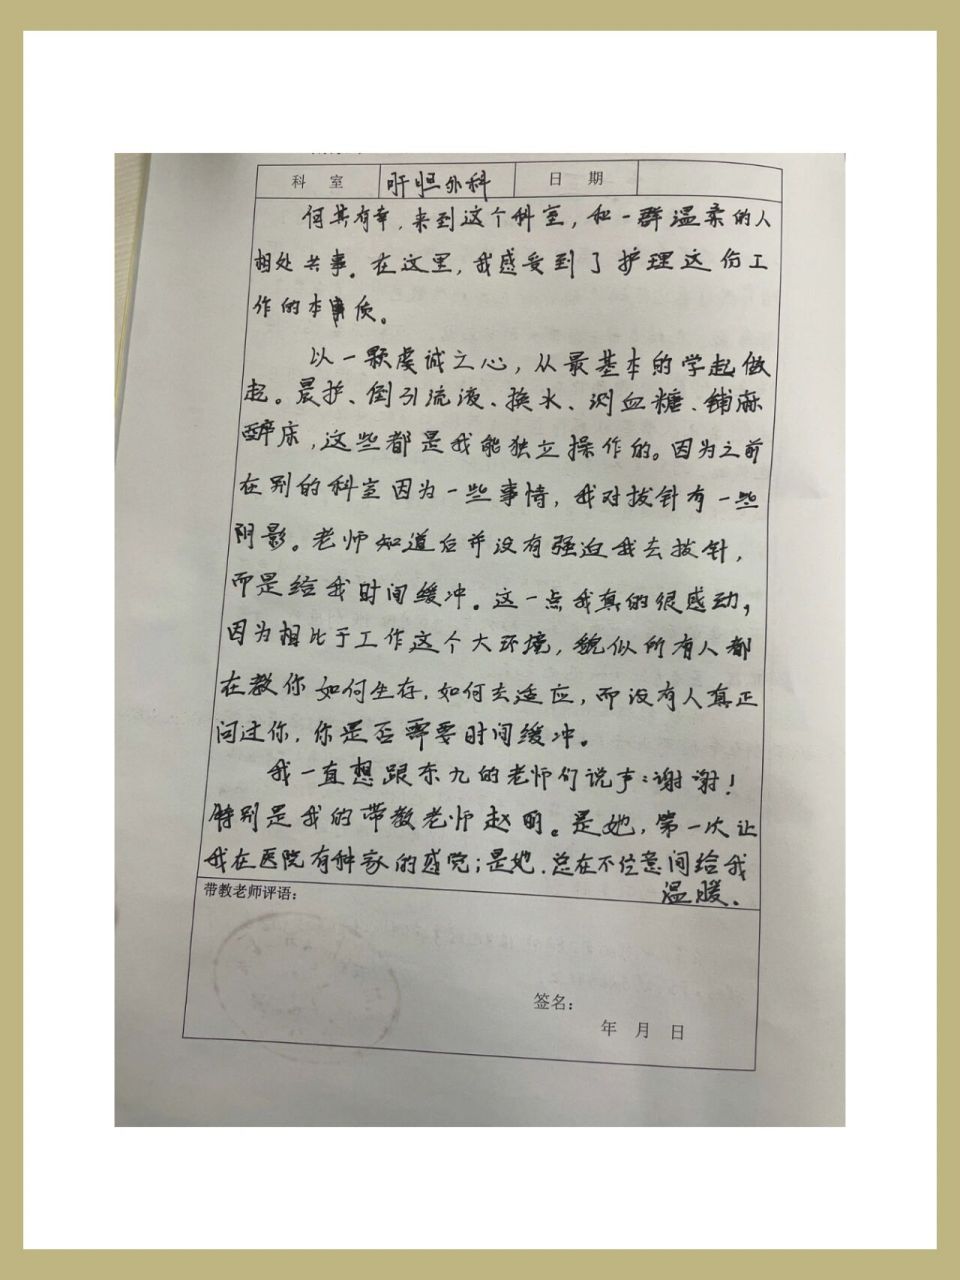 科 室 肝胆外科 日 期
何其有幸，来到这个科室，和一群温柔的人
相处共事。在这里，我感受到了护理这份工
作的本质。
以一颗虔诚之心，从最基本的学起做
起。晨护、倒引流液、换水、测血糖、铺麻
醉床，这些都是我能独立操作的。因为之前
在别的科室因为一些事情，我对拔针有一些
阴影。老师知道后并没有强迫我去拔针，
而是给我时间缓冲。这一点我真的很感动，
因为相比于工作这个大环境，貌似所有人都
在教你如何生存，如何去适应，而没有人真正
问过你，你是否需要时间缓冲。
我一直想跟东九的老师们说声：谢谢！
特别是我的带教老师赵明。是她，第一次让
我在医院有种家的感觉；是她，总在不经意间给我
温暖。
带教老师评语：
签名：
年 月 日